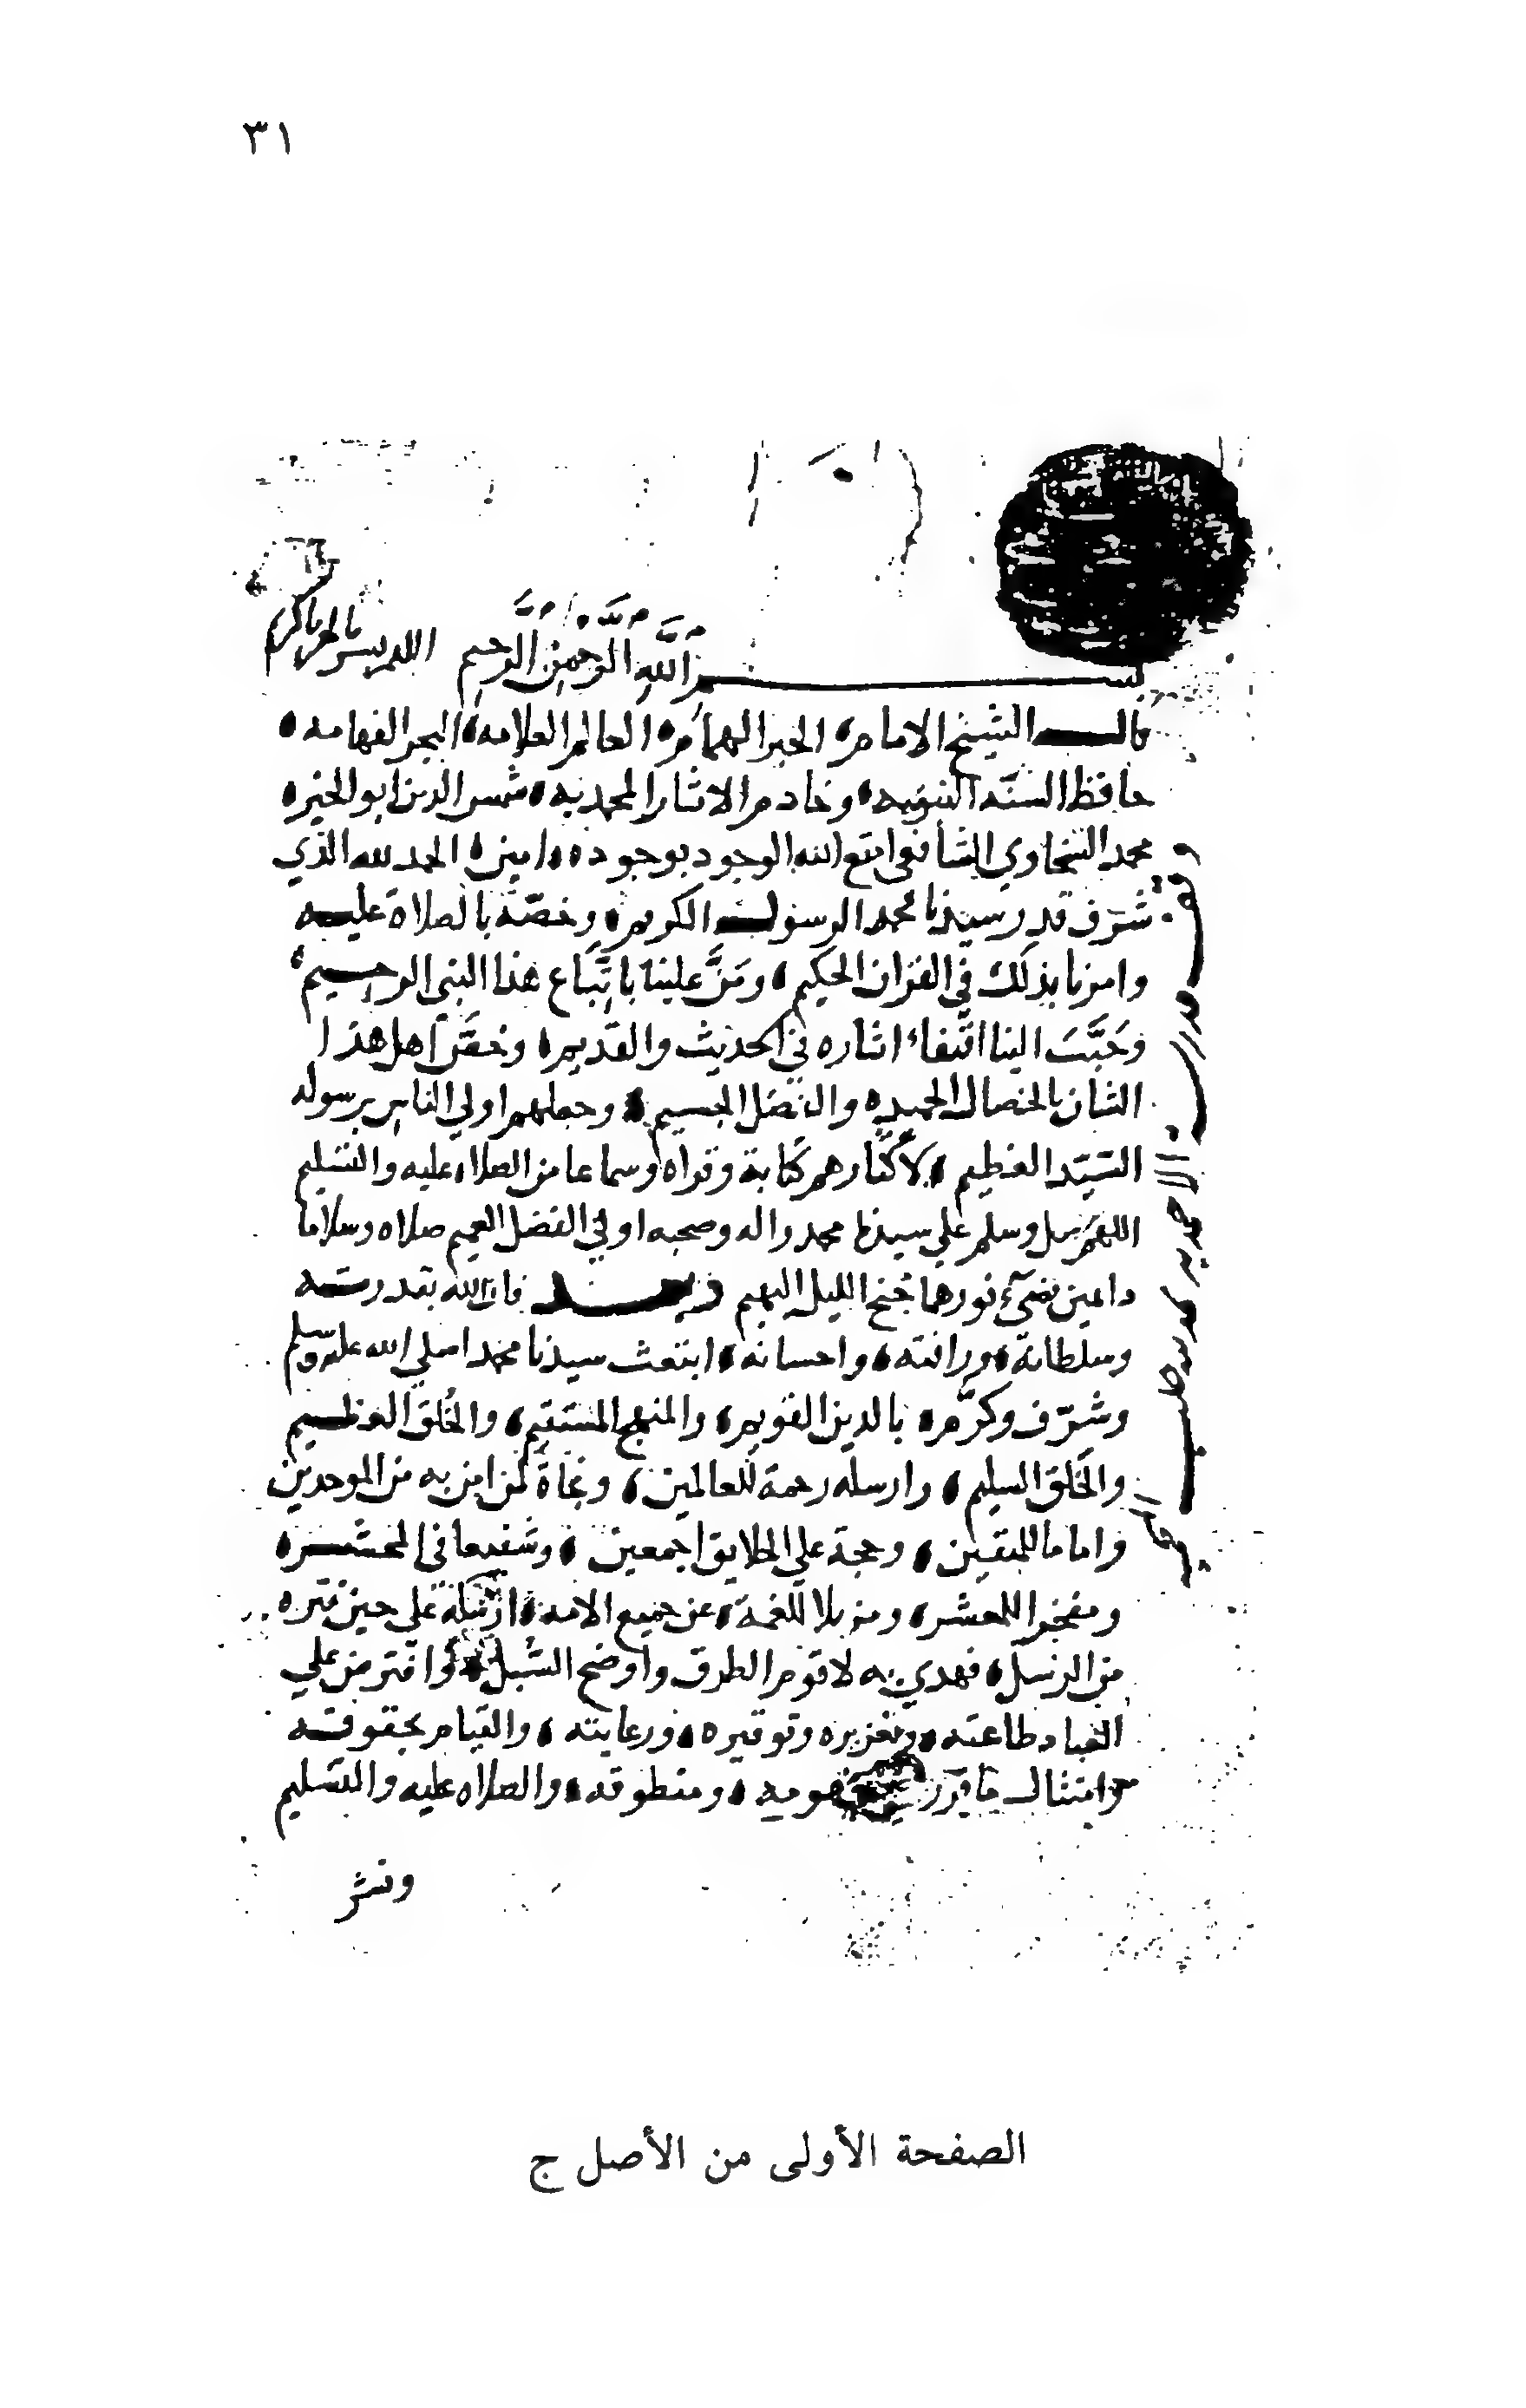 ٣١
بسم الله الرحمن الرحيم اللهم يسر يا كريم
قال الشيخ الامام الحبر الهمام العالم العلامه البحر الفهامه
حافظ السنه النبويه وخادم الاثار المحمديه شمس الدين ابو الخير
محمد السخاوي الشافعى امتع الله الوجود بوجوده امين الحمد لله الذي
شرّف قدر سيدنا محمد الرسول الكريم وخصّه بالصلاة عليه
وامرنا بذلك في القران الحكيم ومَنَّ علينا باتّباع هذا النبي الرحيم
وحَبَّبَ الينا اقتفاء اثاره في الحديث والقديم وخصّ اهل هذا
الشان بالخصال الحميده والفضل الجسيم وجعلهم اولي الناس برسوله
السَيّد العظيم لاكثارهم كتابة وقراه وسماعا من الصلاه عليه والتسليم
اللهم صل وسلم علي سيدنا محمد واله وصحبه اولي الفضل العميم صلاه وسلاما
دايمين يضيء نورهما جُنح الليل البهيم وبعد فان الله بقدرته
وسلطانه ورافته واحسانه ابتعث سيدنا محمدا صلى الله عليه وسلم
وشرّف وكرّم بالدين القويم والمنهج المستقيم والخُلق العظيم
والخَلق السليم وارسله رحمة للعالمين ونجاة لمن امن به من الموحدين
واماما للمتقين وحجة علي الخلايق اجمعين وشفيعا في المحشر
ومفخرا للمعشر ومزيلا للغمة عن جميع الامه ارسله علي حين فتره
من الرسل فهدي به لاقوم الطرق واوضح السُبل وافترض علي
العباد طاعته وتعزيره وتوقيره ورعايته والقيام بحقوقه
وامتثال ما قرر مفهومه ومنطوقه والصلاه عليه والتسليم
ونشر
الصفحة الأولى من الأصل ج